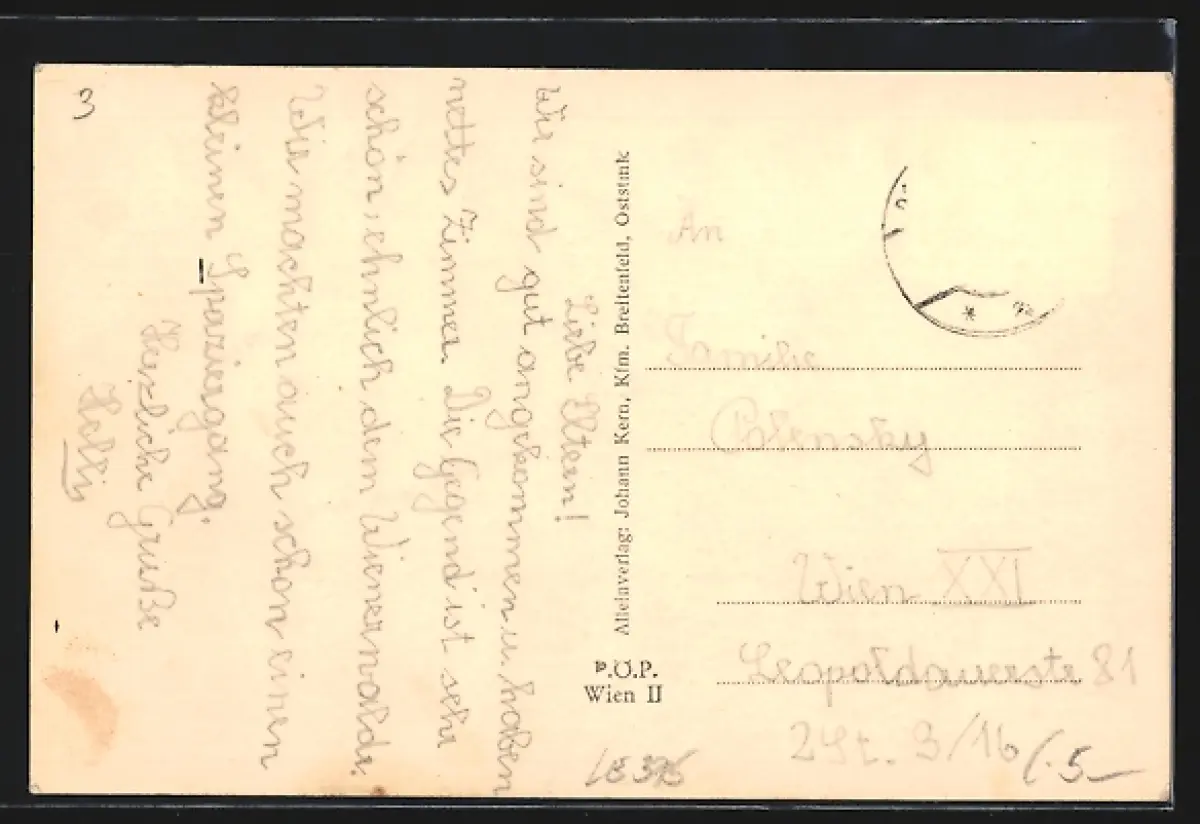 Liebe Eltern!
Wir sind gut angekommen u. haben
nettes Zimmer. Die Gegend ist sehr
schön, ehnlich dem Wienerwalde.
Wir machten auch schon einen
kleinen Spaziergang.
Herzliche Grüße
Helli
Alleinverlag: Johann Kern, Kfm. Breitenfeld, Oststmk
P.Ö.P.
Wien II
An
Familie
Polensky
Wien XXI
Leopoldauerstr 81
2 St. 3/16
5–
3